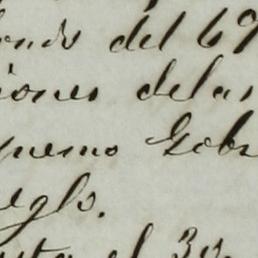 ondo del 69
iones delas
premo Gobr
eglo.
el 30